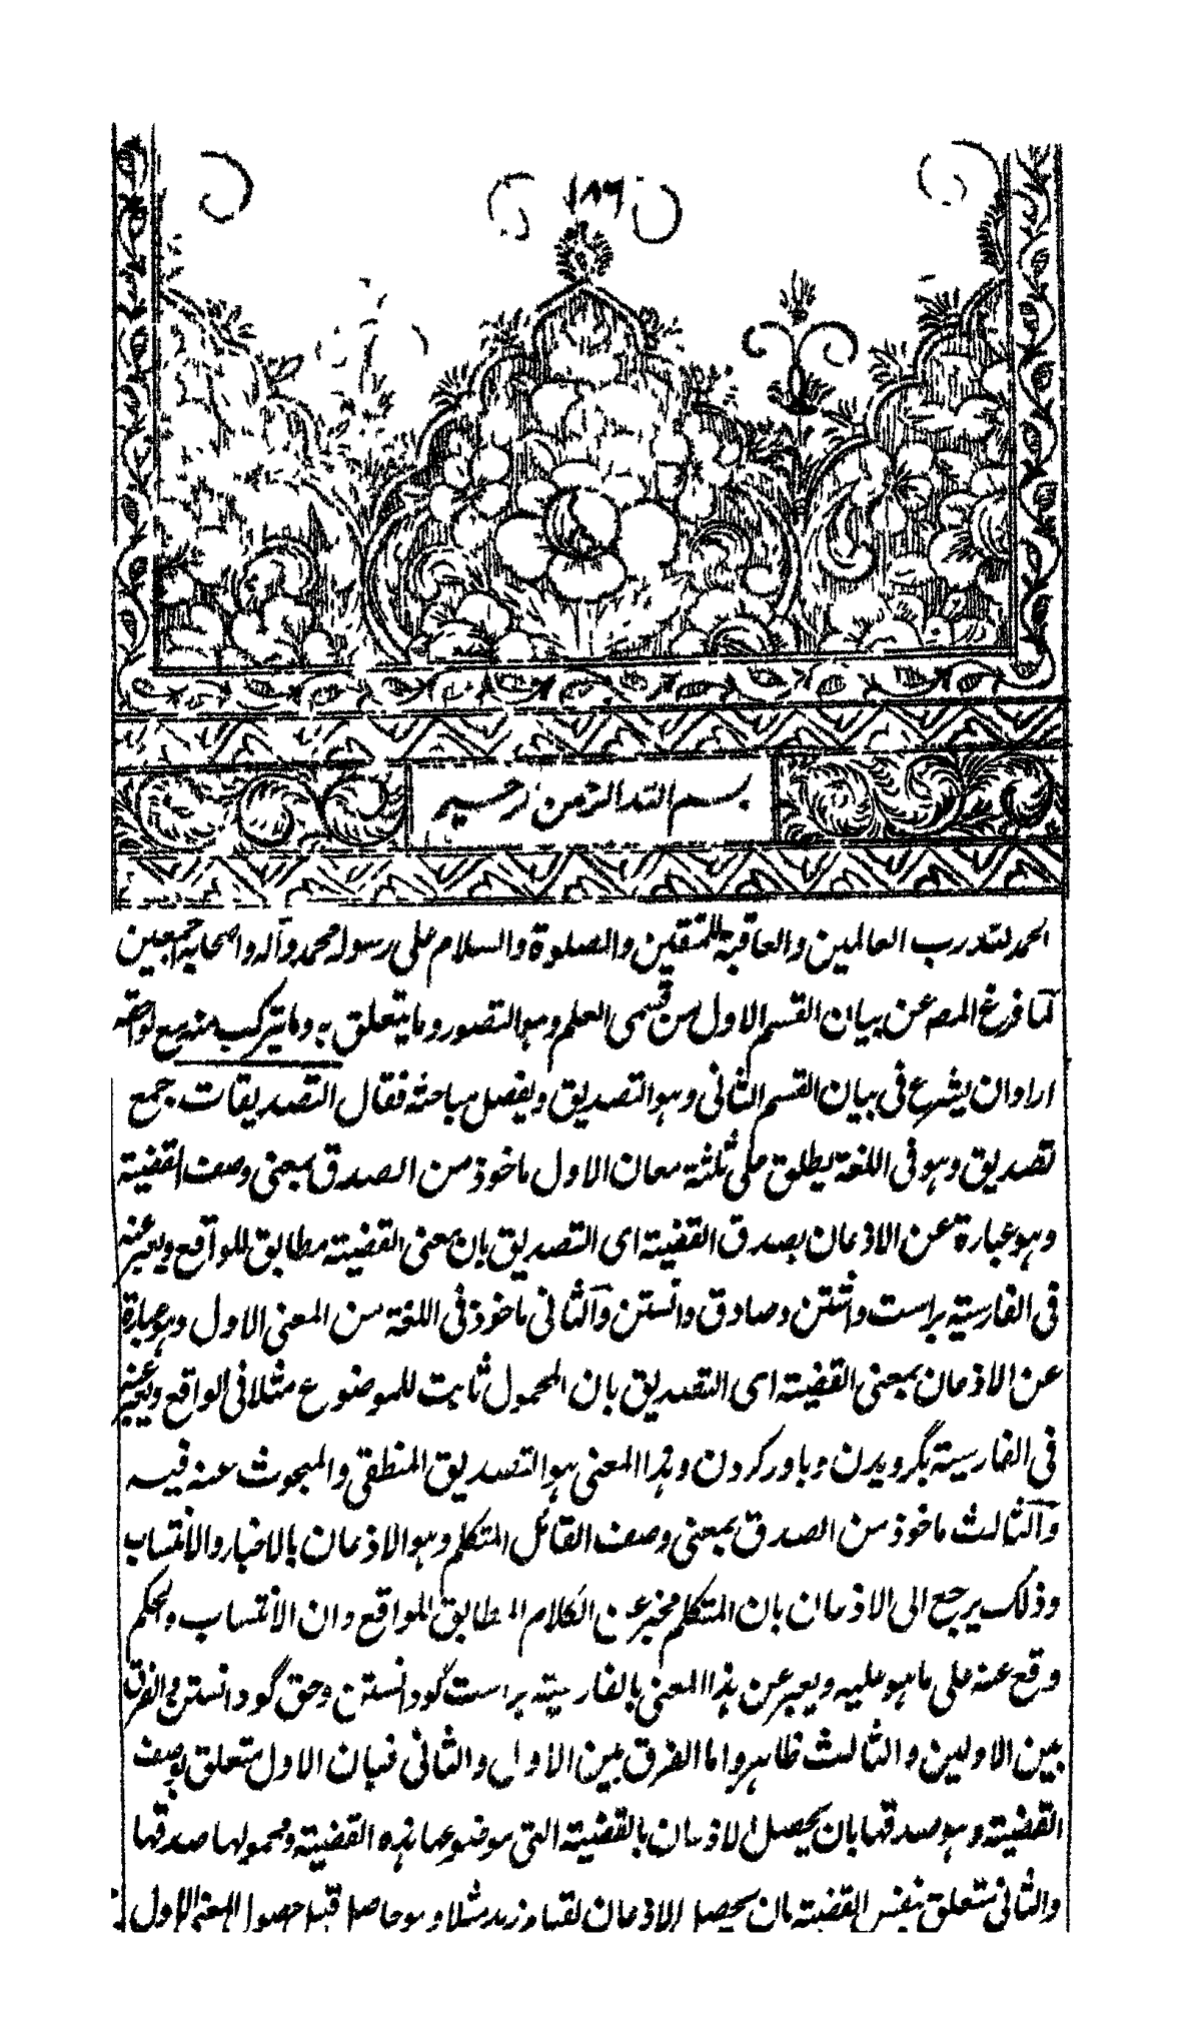 ١٨٦
بسم الله الرحمن الرحيم
الحمد لله رب العالمين والعاقبة للمتقين والصلوة والسلام على رسوله محمد وآله واصحابه اجمعين
لما فرغ المصـ عن بيان القسم الاول من قسمى العلم وهو التصور وما يتعلق به وما يتركب منه مع لواحقه
اراد ان يشرع فى بيان القسم الثانى وهو التصديق ويفصل مباحثه فقال التصديقات جمع
تصديق وهو فى اللغة يطلق على ثلثة معان الاول ماخوذ من الصدق بمعنى وصف القضية
وهو عبارة عن الاذعان بصدق القضية اى التصديق بان معنى القضية مطابق للواقع ويعبر عنه
فى الفارسية براست داشتن وصادق دانستن والثانى ماخوذ فى اللغة من المعنى الاول وهو عبارة
عن الاذعان بمعنى القضية اى التصديق بان المحمول ثابت للموضوع مثلا فى الواقع ويعبر عنه
فى الفارسية بگرويدن وباور كردن وهذا المعنى هو التصديق المنطقى والمبحوث عنه فيه
والثالث ماخوذ من الصدق بمعنى وصف القائل المتكلم وهو الاذعان بالاخبار والانتساب
وذلك يرجع الى الاذعان بان المتكلم مخبر عن الكلام المطابق للواقع وان الانتساب والحكم
وقع عنه على ما هو عليه ويعبر عن هذا المعنى بالفارسية براست گو دانستن وحق گو دانستن والفرق
بين الاولين والثالث ظاهر واما الفرق بين الاول والثانى فبان الاول متعلق بوصف
القضية وهو صدقها بان يحصل الاذعان بالقضية التى موضوعها هذه القضية ومحمولها صدقها
والثانى متعلق بنفس القضية بان يحصل الاذعان لقيام زيد مثلا وهو حاصل قبل حصول المعنى الاول